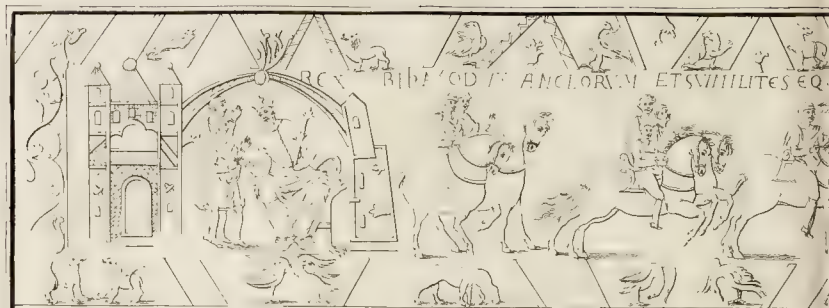 REX ANCLORVM ETSVIMILITES EQ